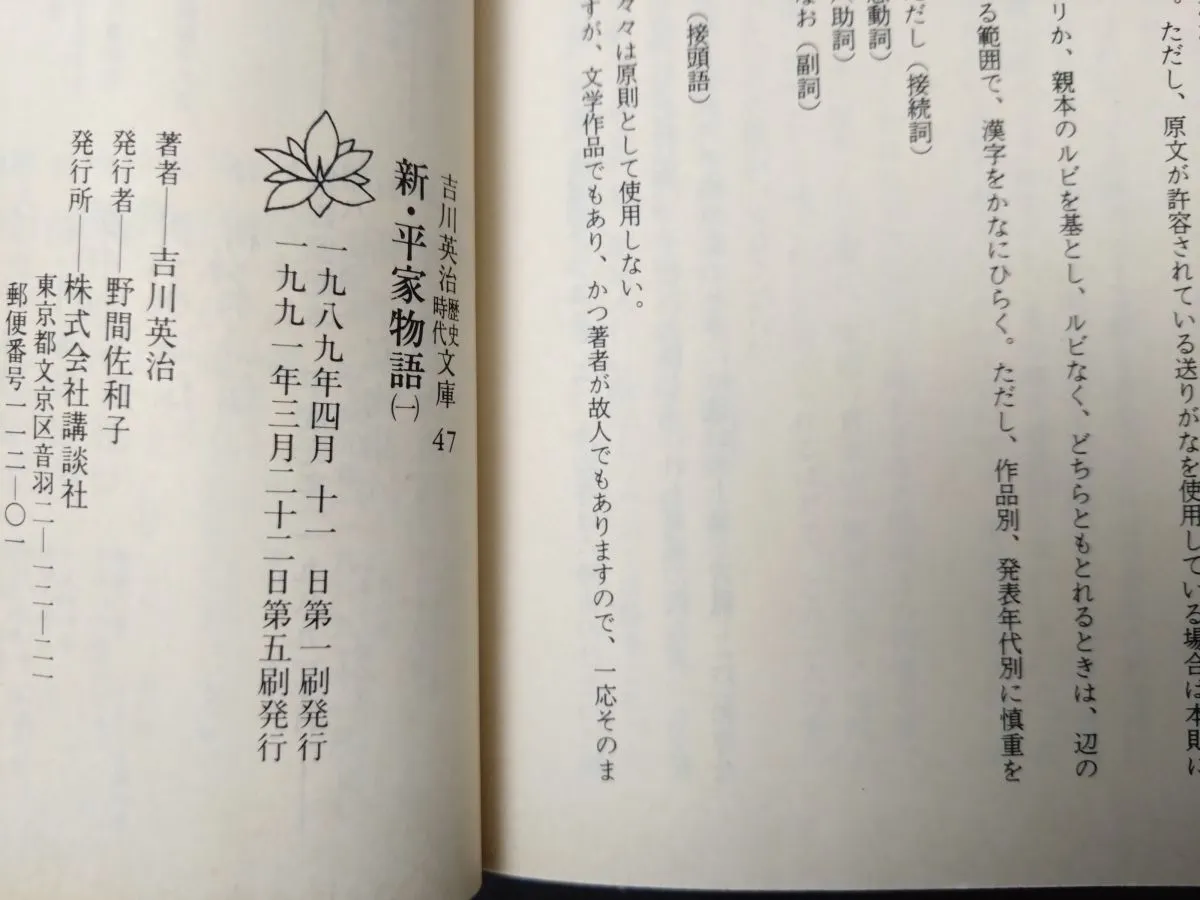 。ただし、原文が許容されている送りがなを使用している場合は本則に
リか、親本のルビを基とし、ルビなく、どちらともとれるときは、辺の
る範囲で、漢字をかなにひらく。ただし、作品別、発表年代別に慎重を
だし（接続詞）
感動詞）
助詞）
なお（副詞）
（接頭語）
々々は原則として使用しない。
すが、文学作品でもあり、かつ著者が故人でもありますので、一応そのま
吉川英治歴史時代文庫 47
新・平家物語㈠
一九八九年四月十一日第一刷発行
一九九一年三月二十二日第五刷発行
著者――吉川英治
発行者――野間佐和子
発行所――株式会社講談社
東京都文京区音羽二―一二―二一
郵便番号一一二―〇一